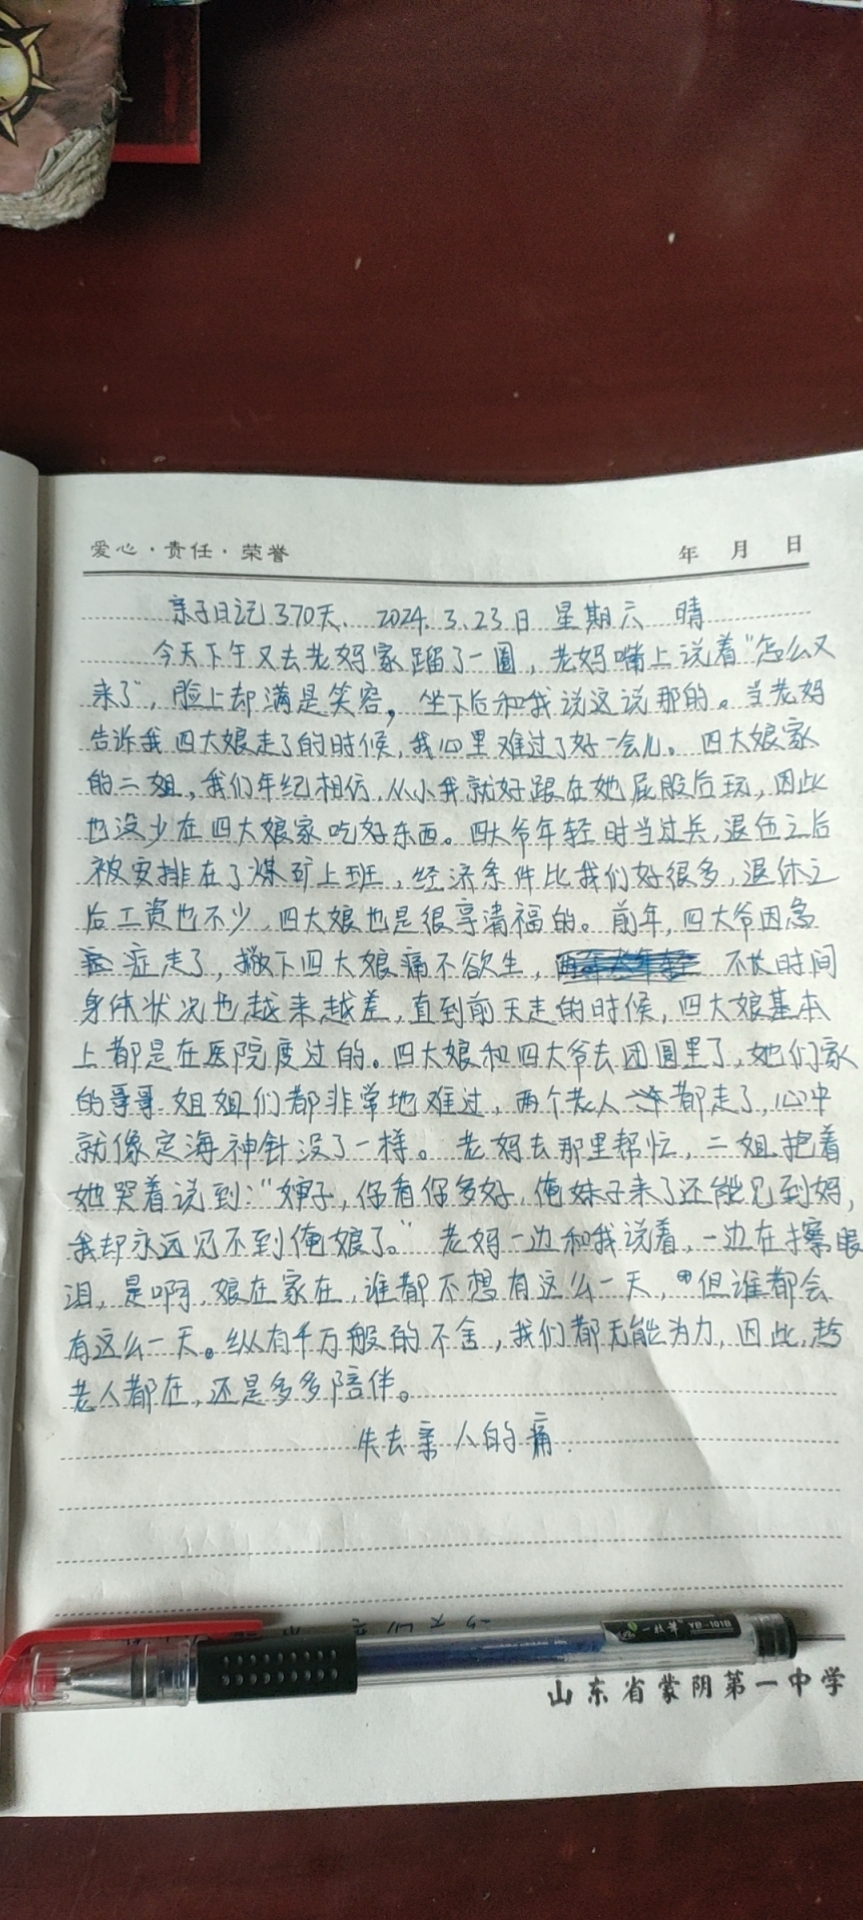 爱心·责任·荣誉 年 月 日
亲子日记370天. 2024.3.23日 星期六 晴
今天下午又去老妈家蹓了一圈，老妈嘴上说着“怎么又
来了”，脸上却满是笑容，坐下后和我说这说那的。当老妈
告诉我四大娘走了的时候，我心里难过了好一会儿。四大娘家
的二姐，我们年纪相仿，从小我就好跟在她屁股后玩，因此
也没少在四大娘家吃好东西。四大爷年轻时当过兵，退伍之后
被安排在了煤矿上班，经济条件比我们好很多，退休之
后工资也不少，四大娘也是很享清福的。前年，四大爷因急
症走了，撇下四大娘痛不欲生，不长时间
身体状况也越来越差，直到前天走的时候，四大娘基本
上都是在医院度过的。四大娘和四大爷去团圆里了，她们家
的哥哥姐姐们都非常地难过，两个老人都走了，心中
就像定海神针没了一样。老妈去那里帮忙，二姐抱着
她哭着说到：“婶子，你看你多好，俺妹子来了还能见到妈，
我却永远见不到俺娘了。”老妈一边和我说着，一边在擦眼
泪，是啊，娘在家在，谁都不想有这么一天，但谁都会
有这么一天。纵有千万般的不舍，我们都无能为力，因此，趁
老人都在，还是多多陪伴。
失去亲人的痛.
一枝笔 YB-101B
山东省蒙阴第一中学